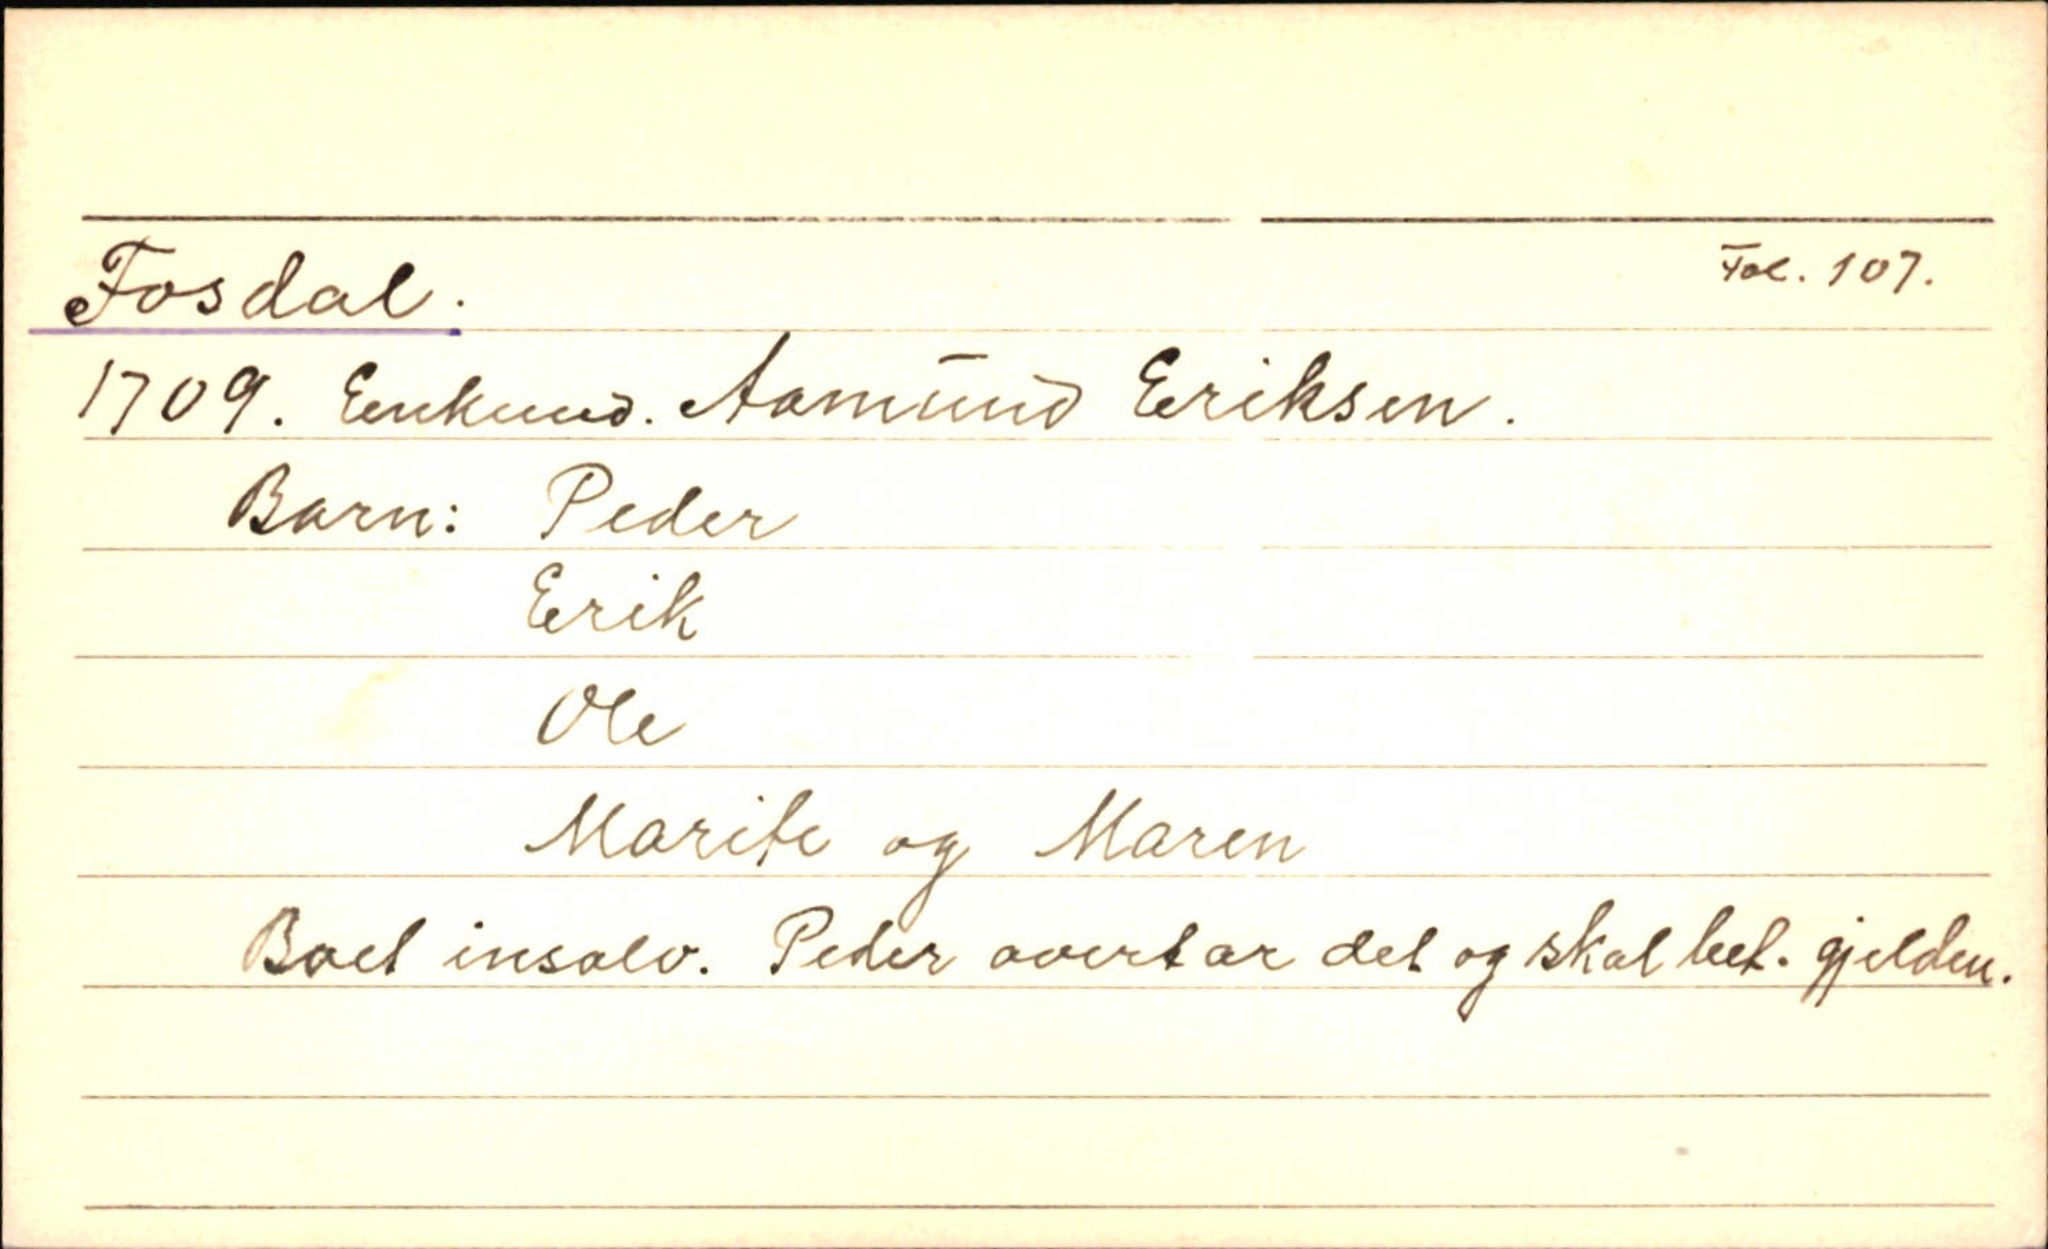 Fosdal. Fol. 107.
1709. Enkemd. Aamund Eriksen.
Barn: Peder
Erik
Ole
Marite og Maren
Boet insolv. Peder overtar det og skal bet. gjelden.